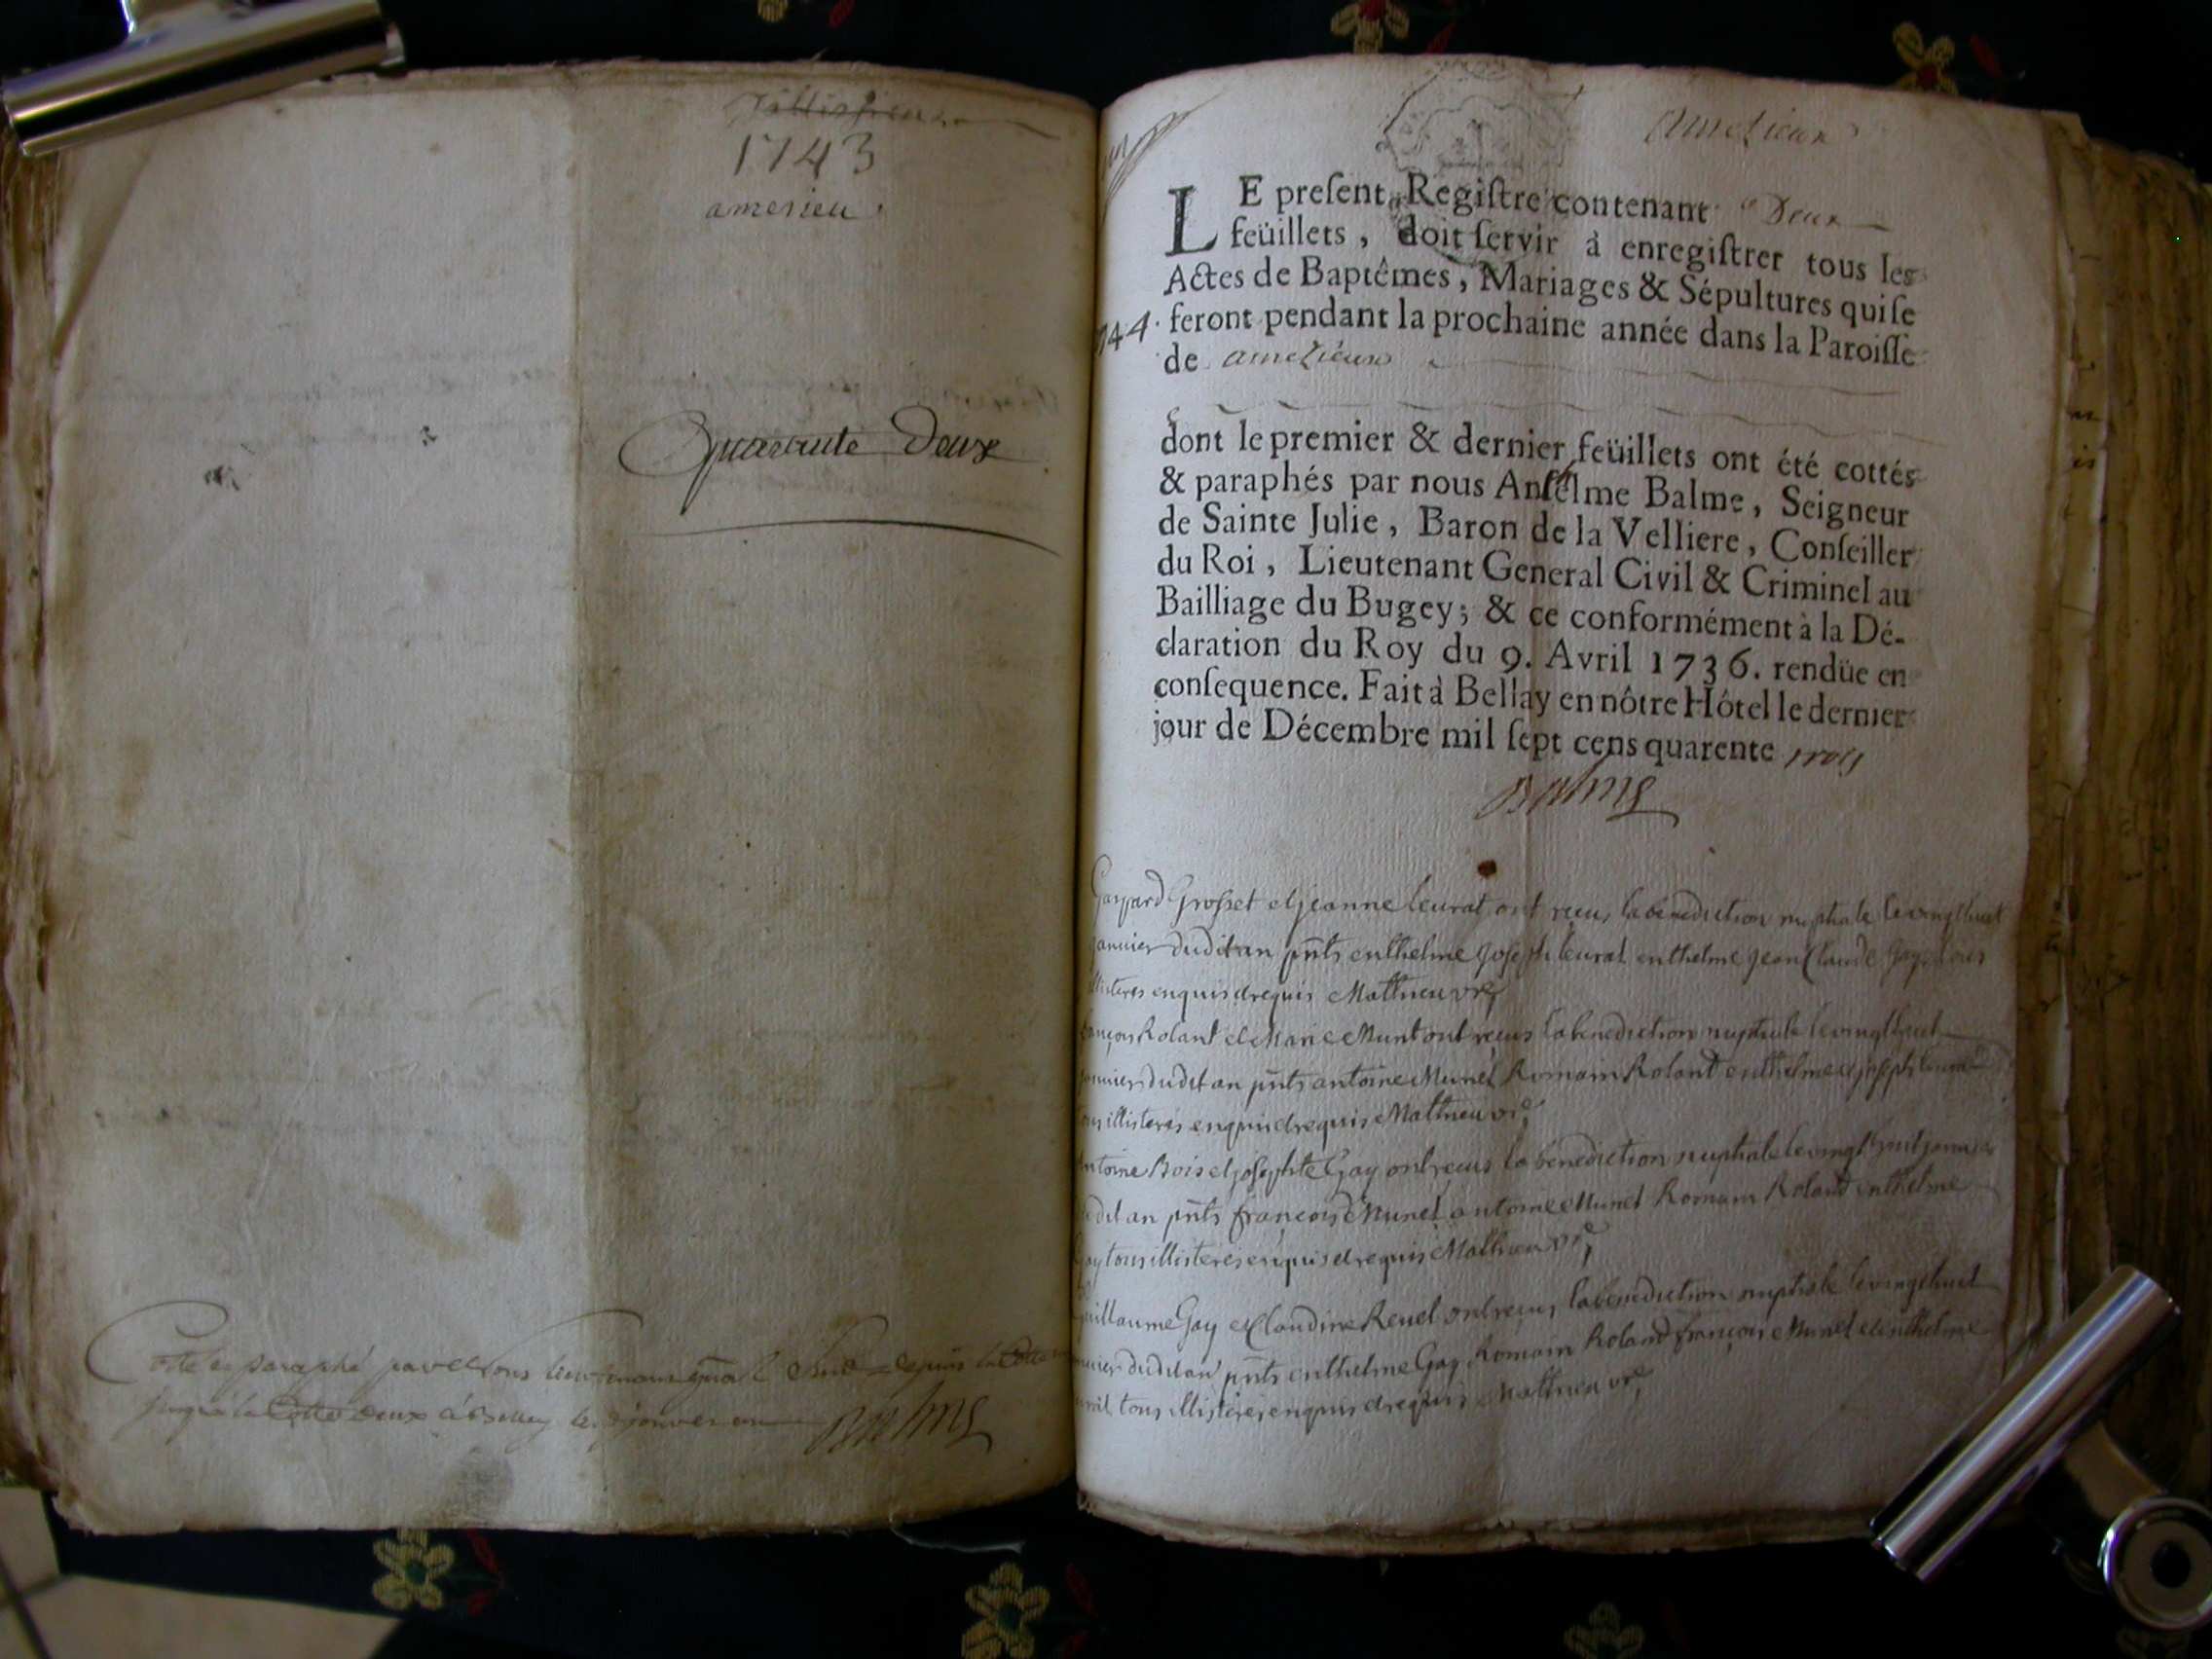 1743
amerieu
Quarante Deux
Cotte et paraphé par Nous
jusqu'à la Cotte deux à Belley les janvier
Balme
Amezieux
LE preſent Regiſtre contenant Deux
feüillets, doit ſervir à enregiſtrer tous les
Actes de Baptêmes, Mariages & Sépultures qui ſe
1744. feront pendant la prochaine année dans la Paroiſſe
de amezieux
dont le premier & dernier feüillets ont été cottés
& paraphés par nous Anſelme Balme, Seigneur
de Sainte Julie, Baron de la Velliere, Conſeiller
du Roi, Lieutenant General Civil & Criminel au
Bailliage du Bugey; & ce conformément à la Dé-
claration du Roy du 9. Avril 1736. rendüe en
conſequence. Fait à Bellay en nôtre Hôtel le dernier
jour de Décembre mil ſept cens quarente trois
Balme
Gaspard Grosset et jeanne leurat ont receu la benediction nuptiale le vingthuit
janvier dudit an pnts enthelme joseph leurat enthelme jean Claude Gay tous
illisteres enquis et requis Mathieu vre
françois Rolant et Marie Munet ont receus la benediction nuptiale le vingthuit
janvier dudit an pnts antoine Munet Romain Rolant enthelme et joseph leurat
tous illisteres enquis et requis Mathieu vre
antoine Bois et josephte Gay ont receus la benediction nuptiale le vingthuit janvier
dudit an pnts françois Munet antoine Munet Romain Roland enthelme
Gay tous illisteres enquis et requis Mathieu vre
Guillaume Gay et Claudine Revel ont receus la benediction nuptiale le vingthuit
janvier dudit an pnts enthelme Gay Romain Roland françois Munet et enthelme
tous illisteres enquis et requis Mathieu vre